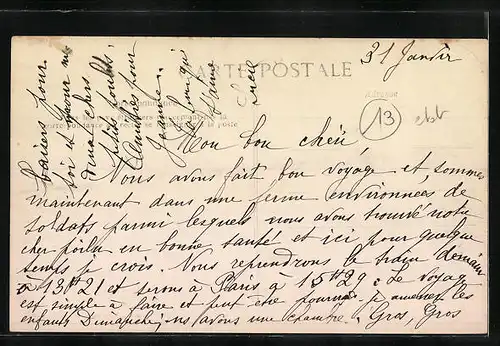 CARTE POSTALE
31 Janvier
13
Mon bon chéri,
Nous avons fait bon voyage et, sommes
maintenant dans une ferme environnées de
soldats parmi lesquels nous avons trouvé notre
cher poilu en bonne santé et ici pour quelque
temps je crois. Nous reprendrons le train demain
à 13h21 et serons à Paris à 15h29. Le voyage
est simple à faire et peut être pourrais je amener les
enfants Dimanche, ns avons une chambre. Gros, Gros
baisers pour
toi et pour nos
deux chers
petits
Jeanne.